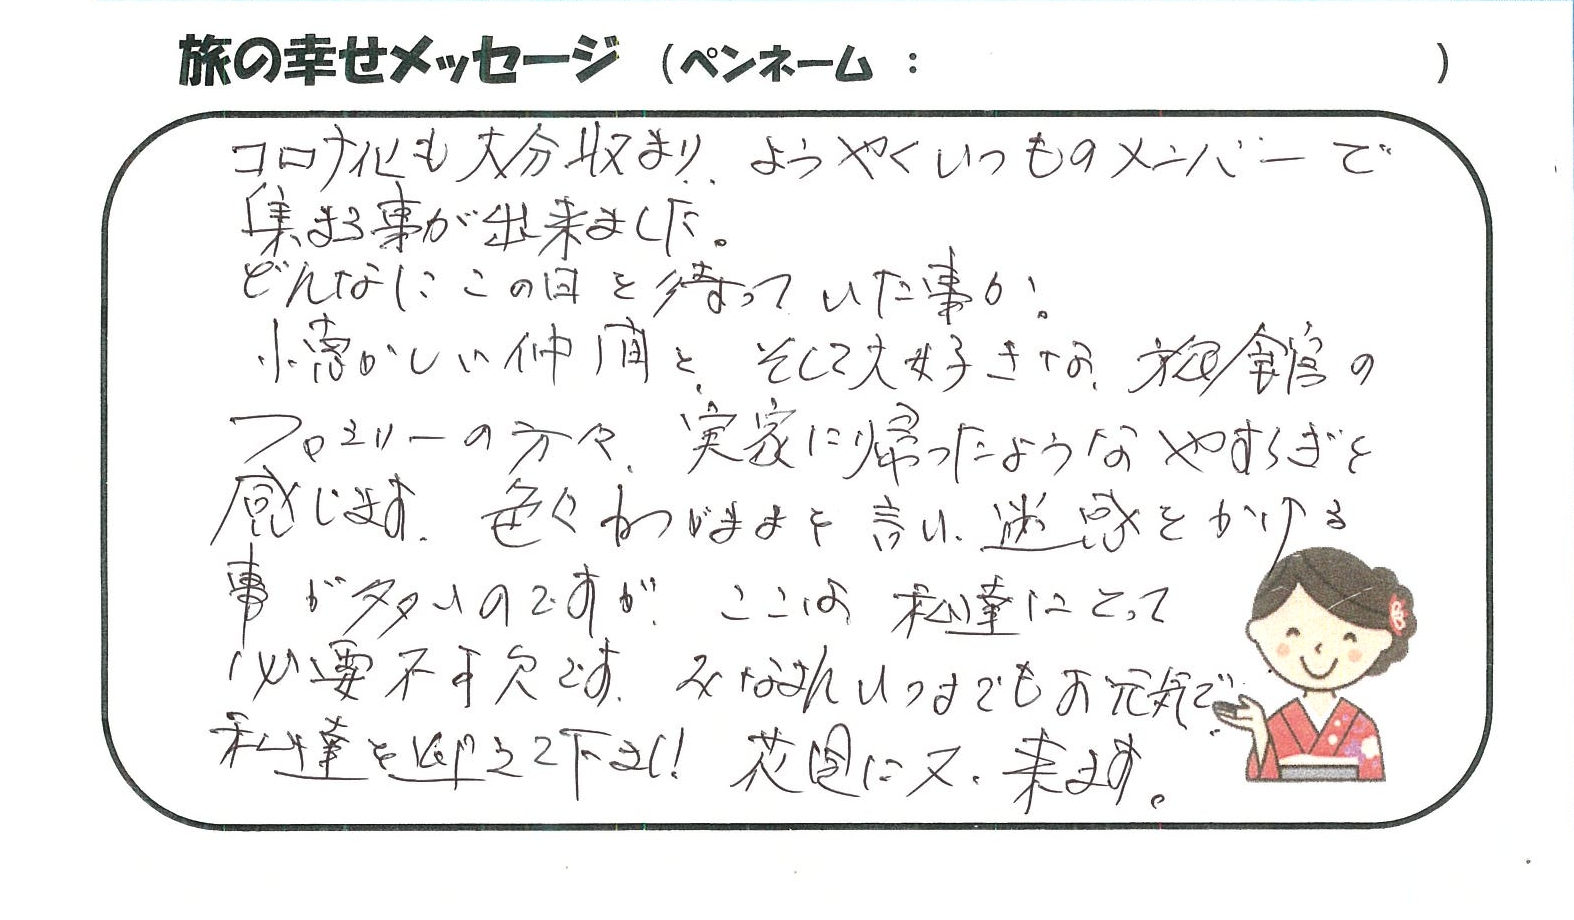 旅の幸せメッセージ (ペンネーム : )
コロナ化も大分収まり、ようやくいつものメンバーで
集まる事が出来ました。
どんなにこの日を待っていた事か。
小憎かしい仲間と、そして大好きな、旅館の
ファミリーの方々、実家に帰ったようなやすらぎを
感じます。色々わがままを言い、迷惑をかける
事が多いのですが、ここは私達にとって
必要不可欠です。みなさんいつまでもお元気で、
私達を迎えて下さい! 花園に又、来ます。